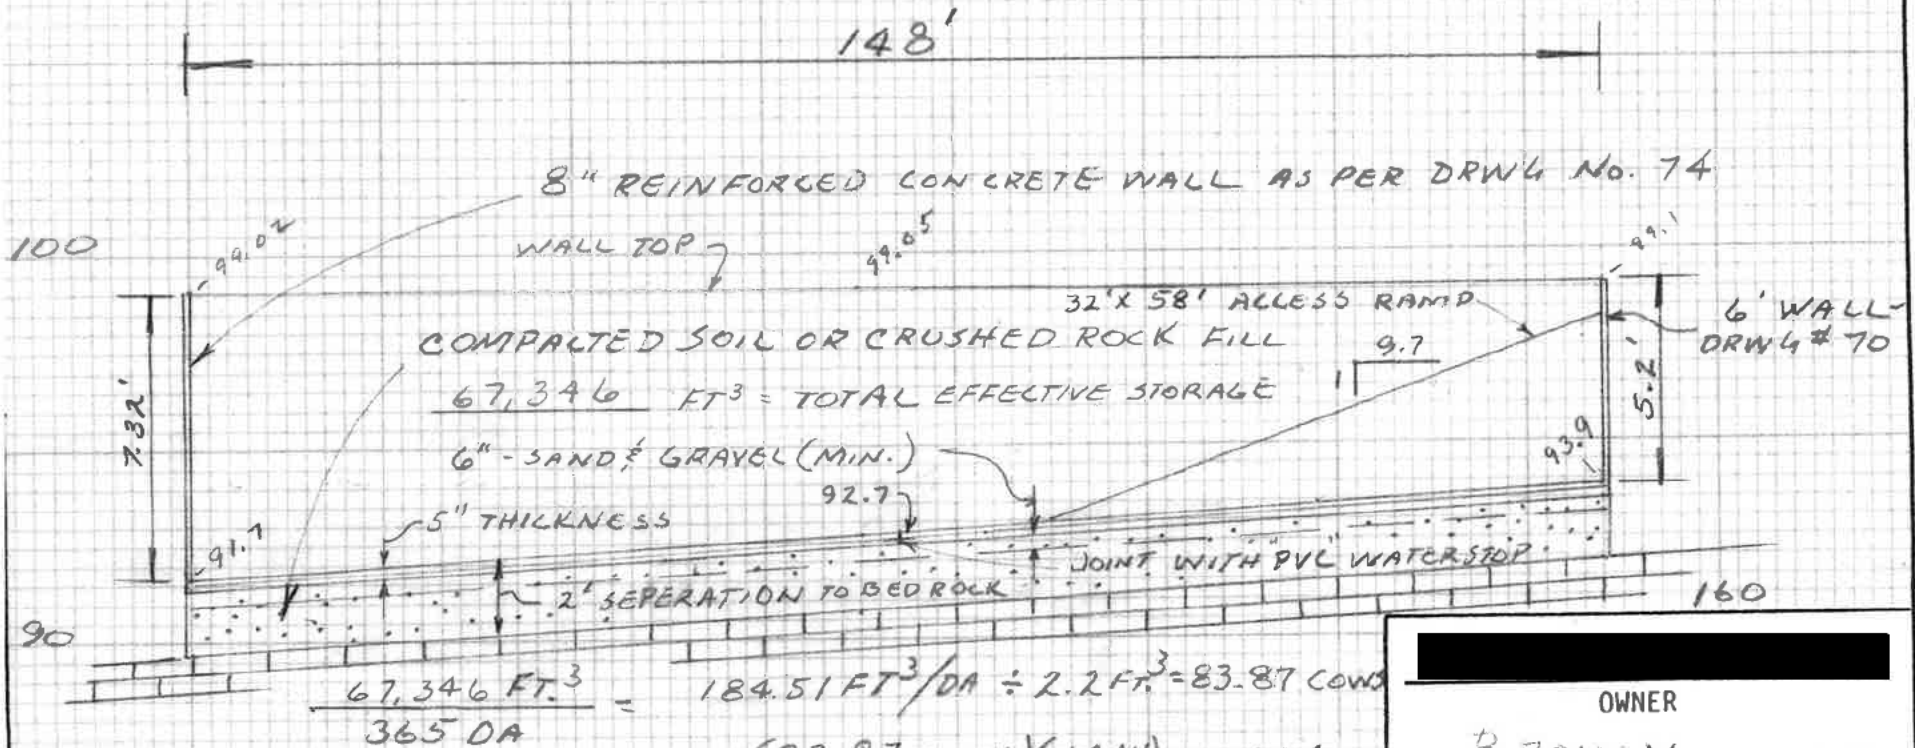 148'
8" REINFORCED CONCRETE WALL AS PER DRWG No. 74
100
99.02
WALL TOP
99.05
99.1
32' X 58' ACCESS RAMP
6' WALL-
DRWG # 70
COMPACTED SOIL OR CRUSHED ROCK FILL
9.7
1
7.32'
67,346 FT³ = TOTAL EFFECTIVE STORAGE
5.2'
6" - SAND & GRAVEL (MIN.)
93.9
92.7
5" THICKNESS
91.7
JOINT WITH "PVC" WATERSTOP
2' SEPERATION TO BEDROCK
160
90
67,346 FT.³ = 184.51 FT³/DA ÷ 2.2 FT.³ = 83.87 COWS
365 DA
OWNER